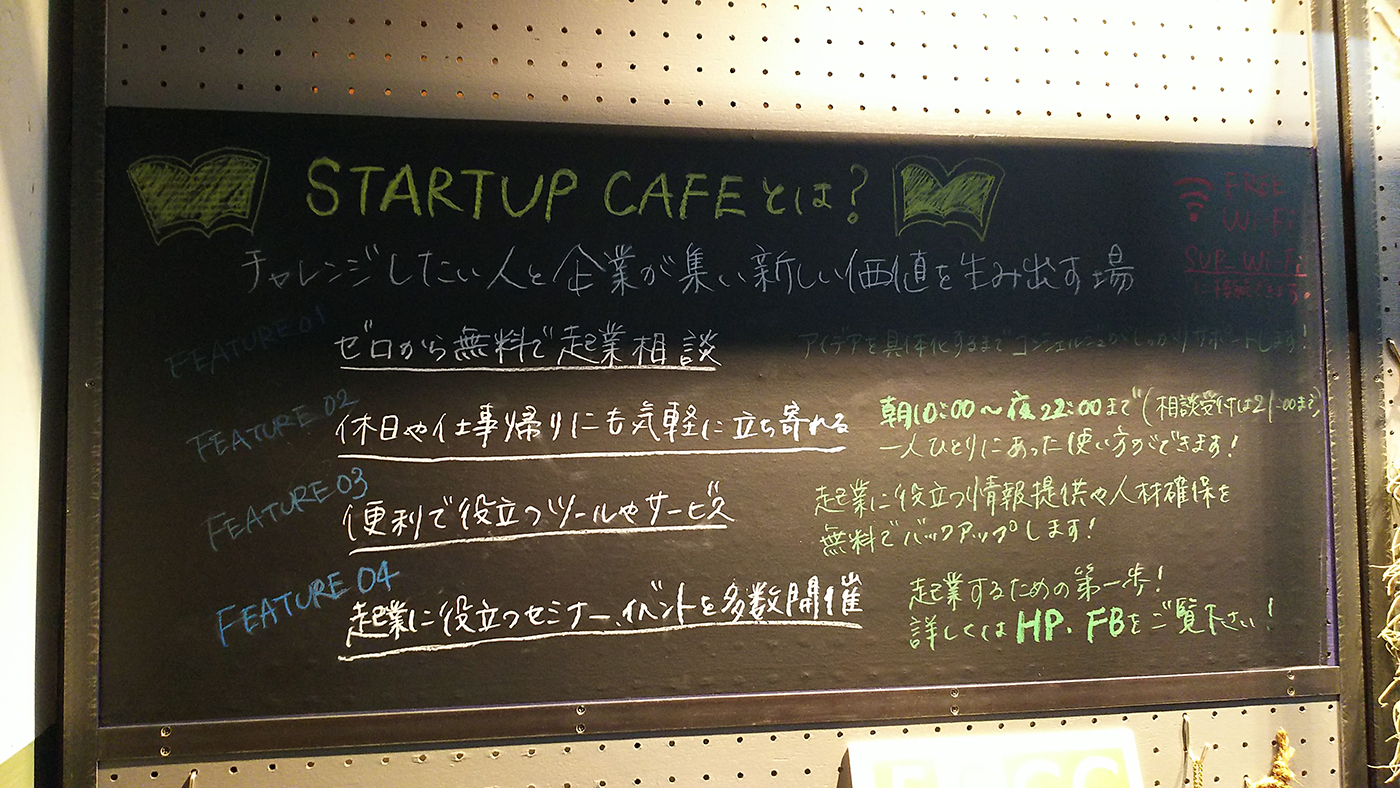 STARTUP CAFEとは?
FREE
Wi-Fi
SUP Wi-Fi
に接続できます!
チャレンジしたい人と企業が集い新しい価値を生み出す場
FEATURE 01
ゼロから無料で起業相談
アイデアを具体化するまでコンシェルジュがしっかりサポートします!
FEATURE 02
休日や仕事帰りにも気軽に立ち寄れる
朝10:00〜夜22:00まで(相談受付は21:00まで)
一人ひとりにあった使い方ができます!
FEATURE 03
便利で役立つツールやサービス
起業に役立つ情報提供や人材確保を
無料でバックアップします!
FEATURE 04
起業に役立つセミナー、イベントを多数開催
起業するための第一歩!
詳しくはHP、FBをご覧下さい!